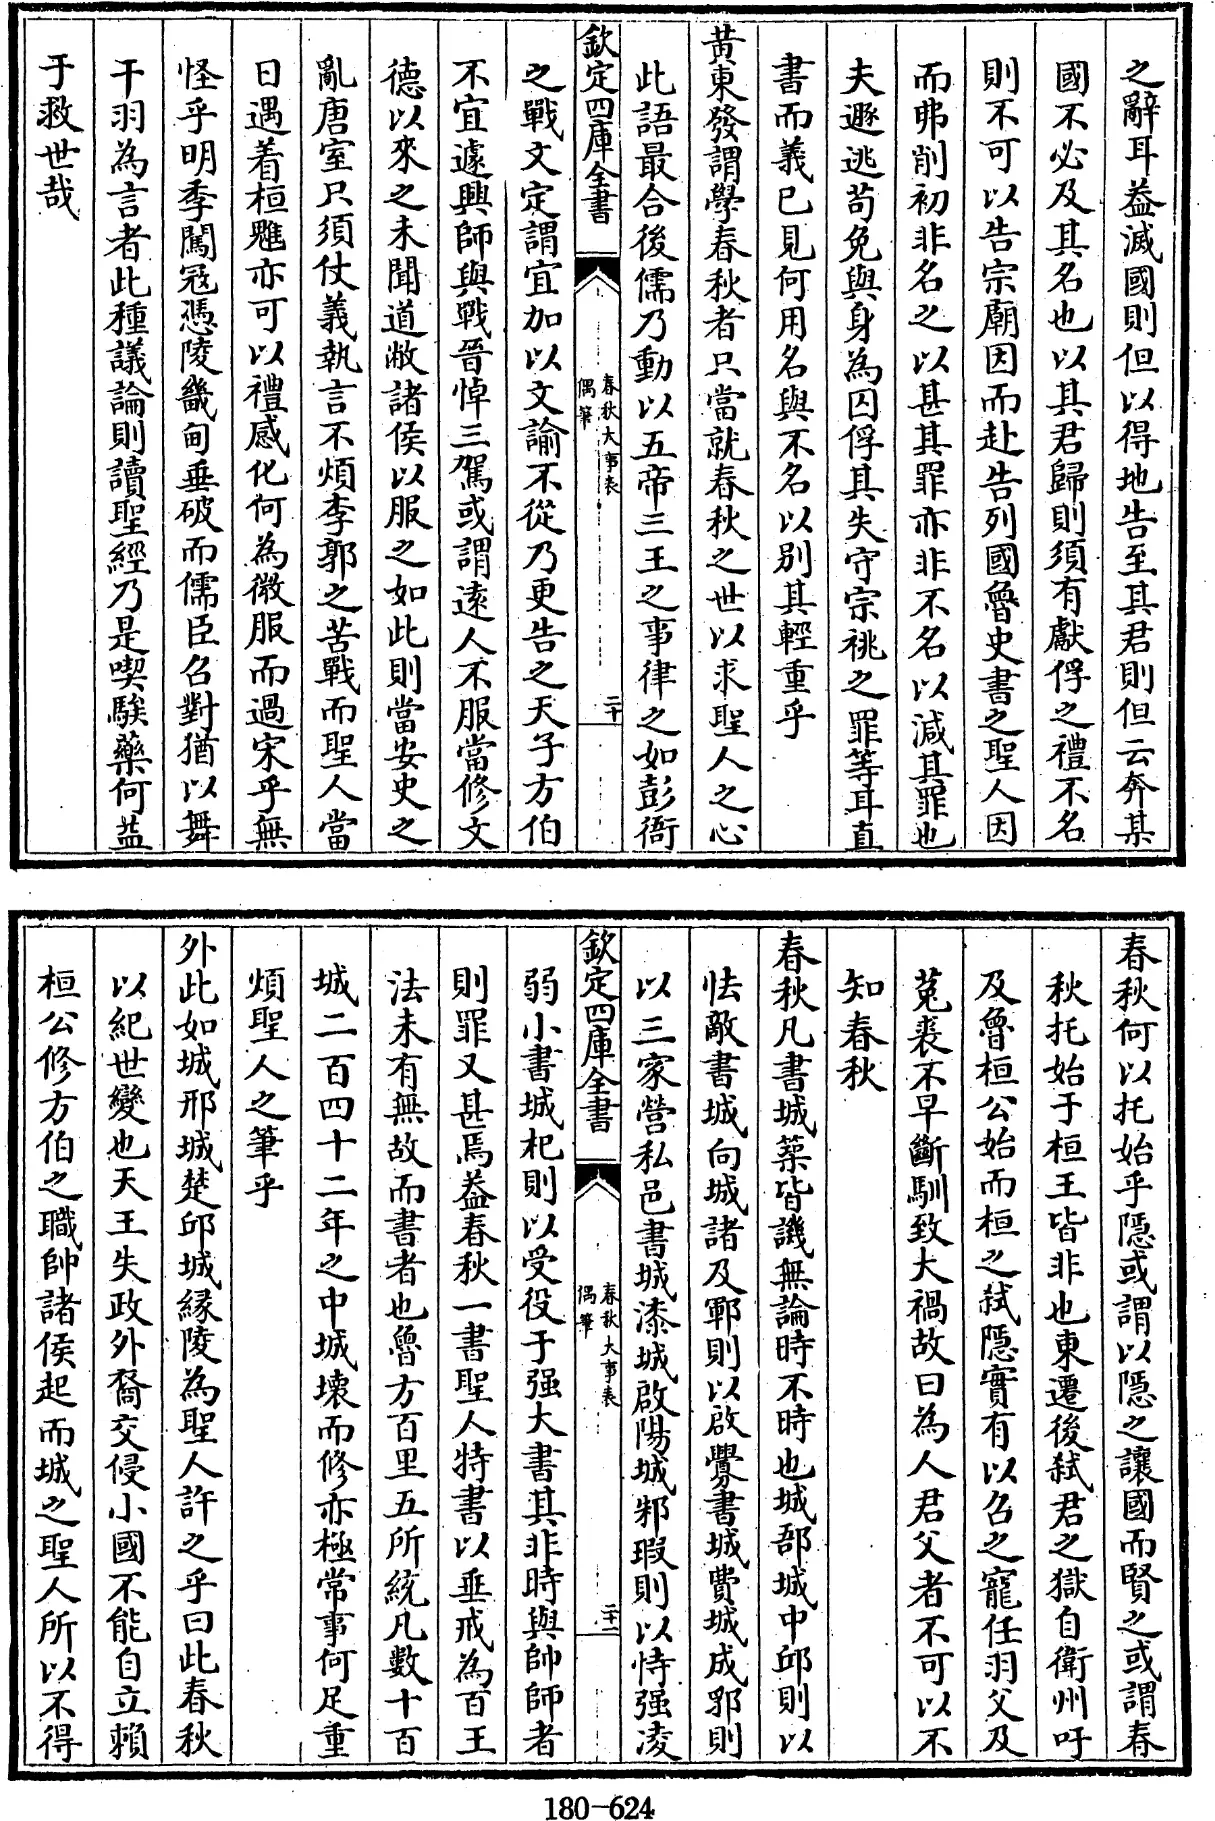 之辭耳葢滅國則但以得地告至其君則但云奔某
國不必及其名也以其君歸則須有獻俘之禮不名
則不可以告宗廟因而赴告列國魯史書之聖人因
而弗削初非名之以甚其罪亦非不名以減其罪也
夫遯逃苟免與身為囚俘其失守宗祧之罪等耳直
書而義已見何用名與不名以别其輕重乎
黄東發謂學春秋者只當就春秋之世以求聖人之心
此語最合後儒乃動以五帝三王之事律之如彭衙
欽定四庫全書
春秋大事表
偶筆
二十
之戰文定謂宜加以文諭不從乃更告之天子方伯
不宜遽興師與戰晉悼三駕或謂遠人不服當修文
德以來之未聞道敝諸侯以服之如此則當安史之
亂唐室只須仗義執言不煩李郭之苦戰而聖人當
日遇着桓魋亦可以禮感化何為微服而過宋乎無
怪乎明季闖冦憑陵畿甸垂破而儒臣召對猶以舞
干羽為言者此種議論則讀聖經乃是喫騃藥何益
于救世哉
春秋何以托始乎隱或謂以隱之讓國而賢之或謂春
秋托始于桓王皆非也東遷後弑君之獄自衛州吁
及魯桓公始而桓之弑隱實有以召之寵任羽父及
菟裘不早斷馴致大禍故曰為人君父者不可以不
知春秋
春秋凡書城築皆譏無論時不時也城郚城中邱則以
怯敵書城向城諸及鄆則以啟釁書城費城成郛則
以三家營私邑書城漆城啟陽城邾瑕則以恃强凌
欽定四庫全書
春秋大事表
偶筆
二十一
弱小書城杞則以受役于强大書其非時與帥師者
則罪又甚焉葢春秋一書聖人特書以垂戒為百王
法未有無故而書者也魯方百里五所統凡數十百
城二百四十二年之中城壊而修亦極常事何足重
煩聖人之筆乎
外此如城邢城楚邱城緣陵為聖人許之乎曰此春秋
以紀世變也天王失政外裔交侵小國不能自立賴
桓公修方伯之職帥諸侯起而城之聖人所以不得
180-624